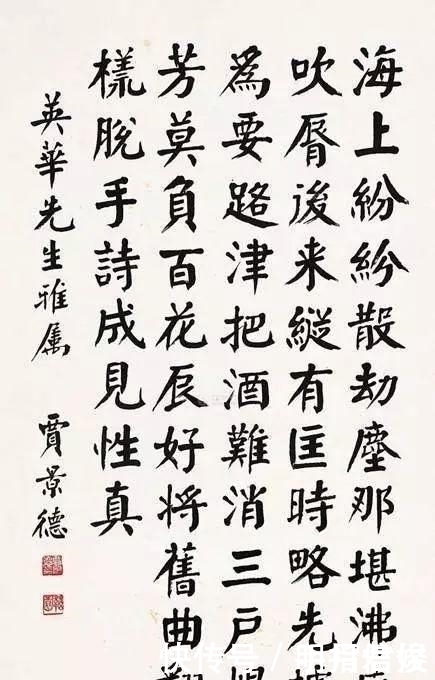 海上紛紛散劫塵那堪沸
吹脣後来縱有匡時略先
為要路津把酒難消三戶
芳莫負百花辰好将舊曲
樣脫手詩成見性真
英華先生雅属
賈景德
快传号